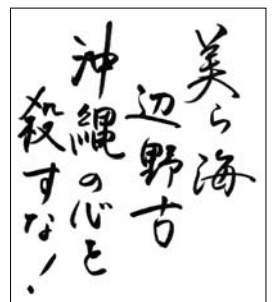 美ら海
辺野古
沖縄の心を
殺すな!